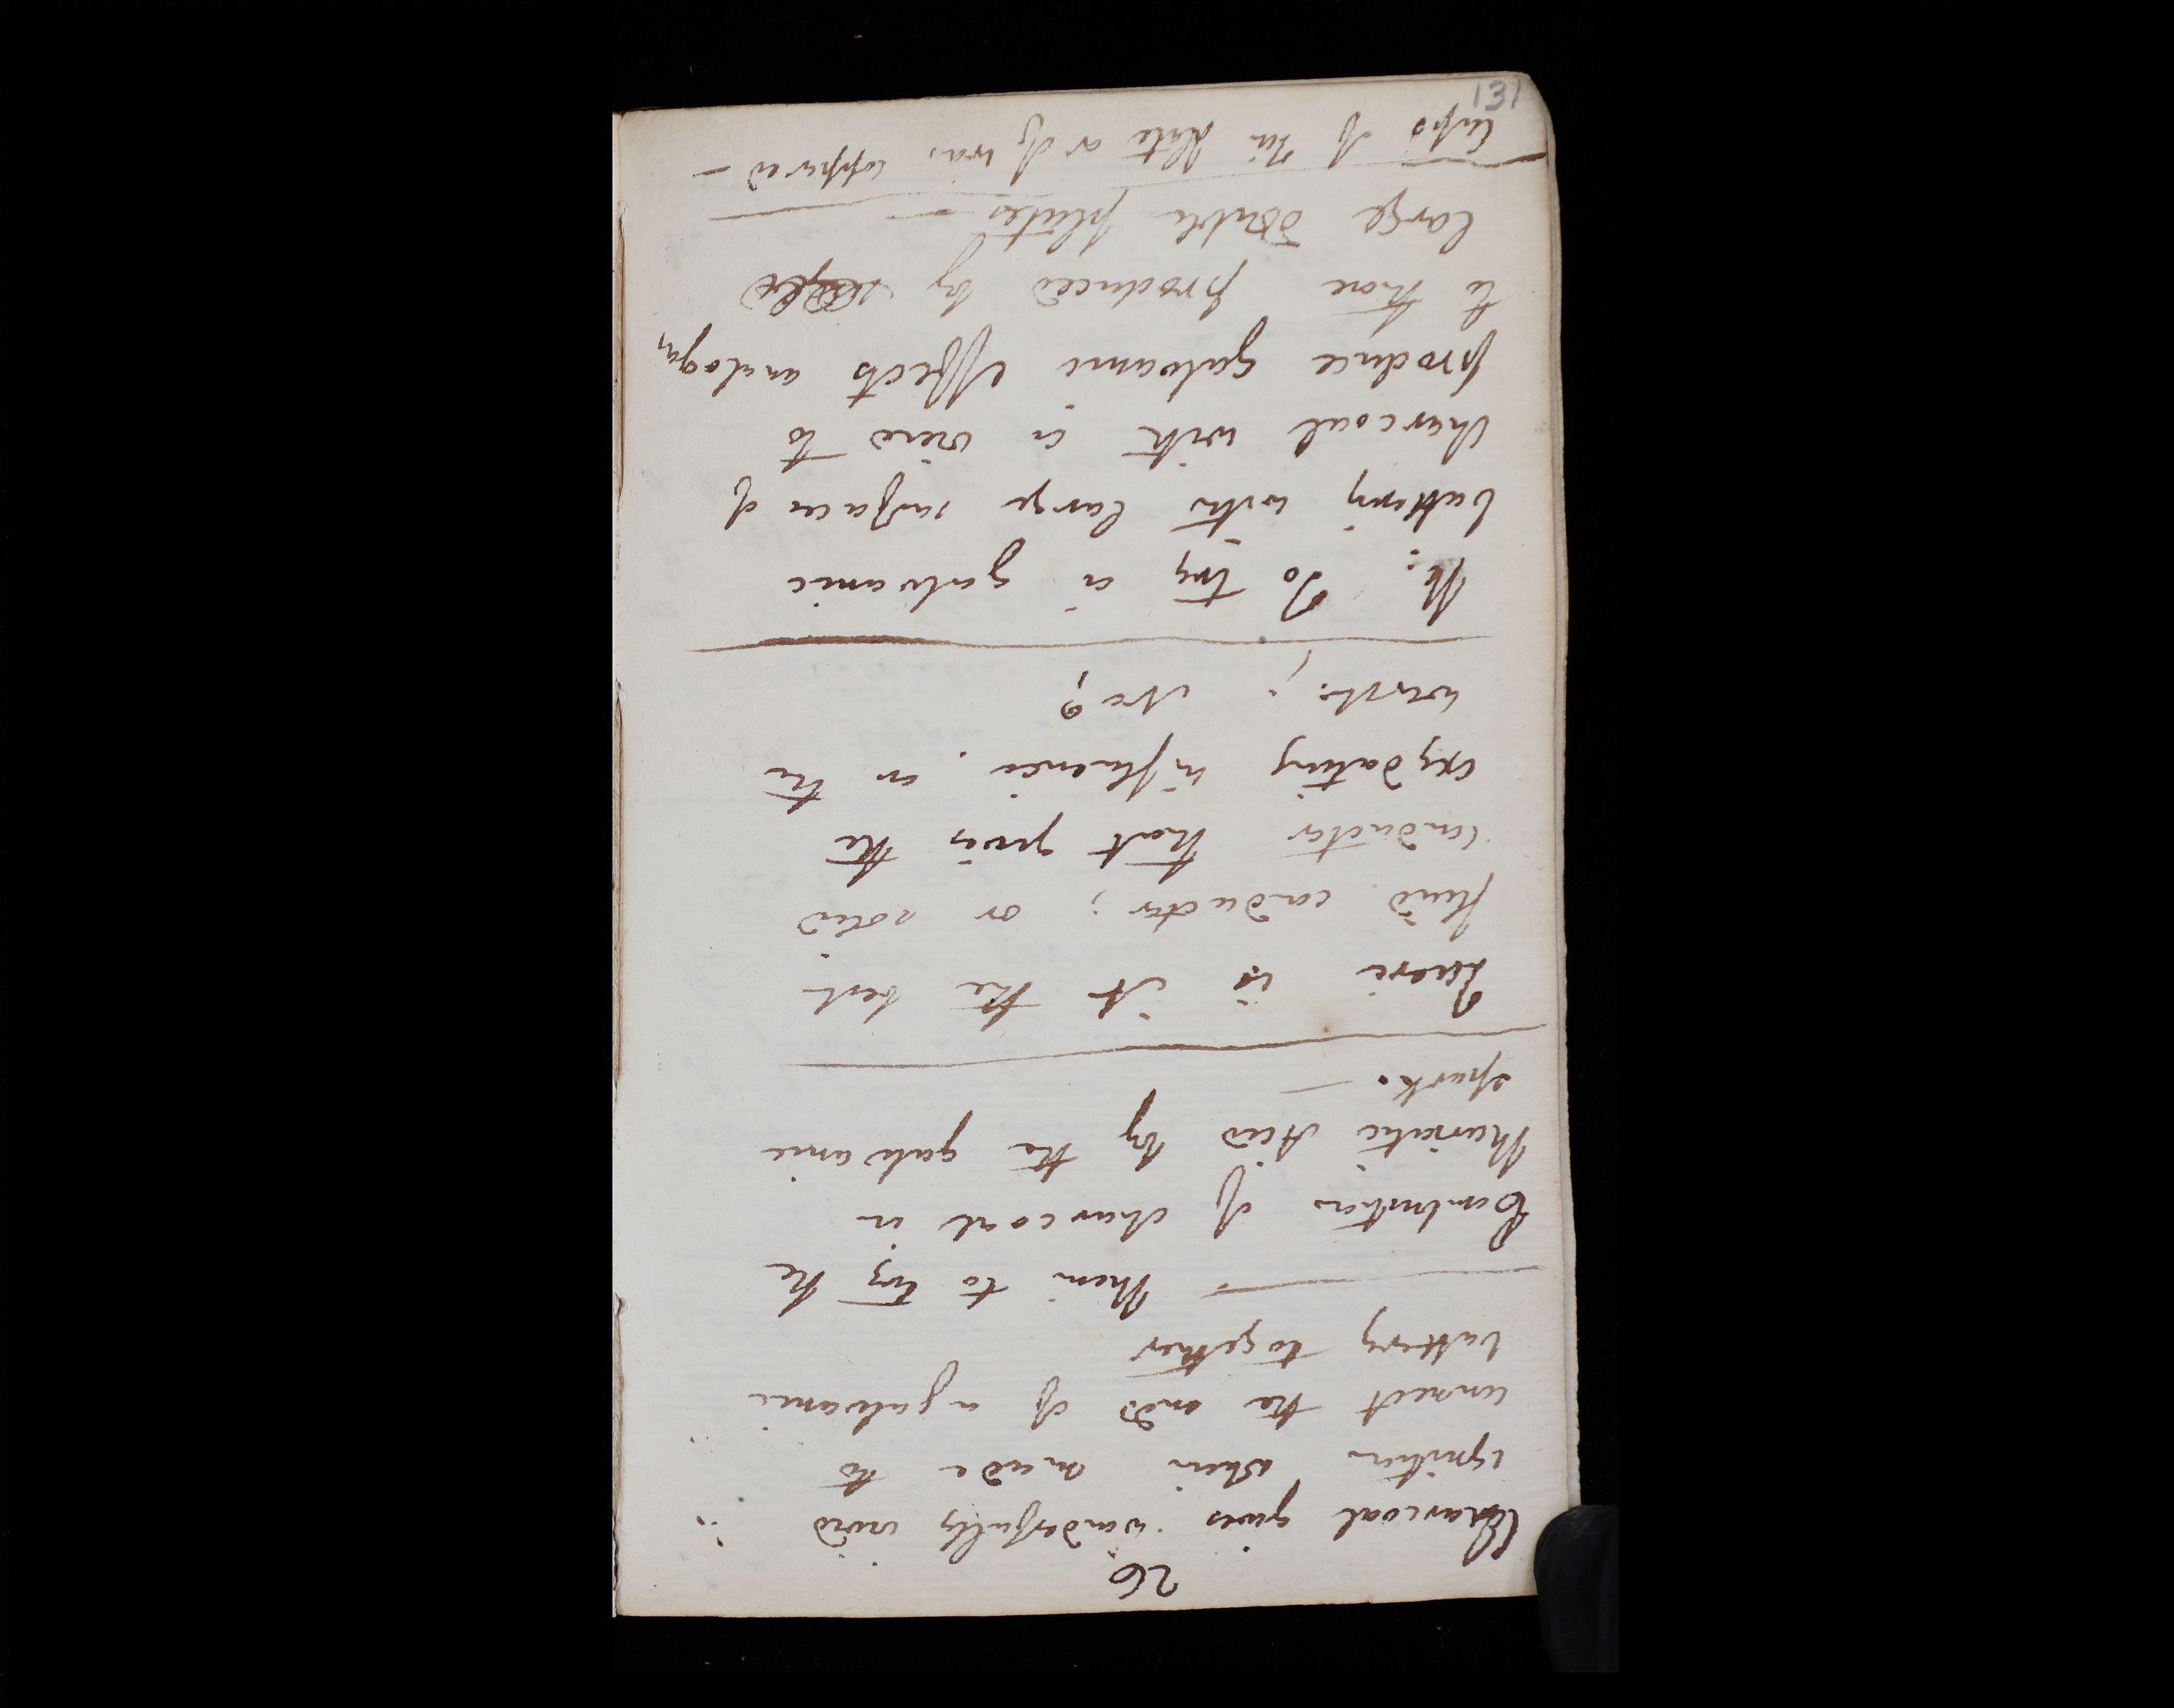 26
Charcoal gives wonderfully vivid
ignition when made to
connect the ends of a galvanic
battery together
Mem: to try the
Combustion of charcoal in
Muriatic Acid by the galvanic
spark. —
Quere is it the best
fluid conductor; or solid
conductor that gives the
oxydating influence, or the
worst: ; No?
M: To try a galvanic
battery with large surfaces of
charcoal with a view to
produce galvanic effects analogs,
to those produced by
large double plates —
Cups of tin plate or of iron coppered —
131